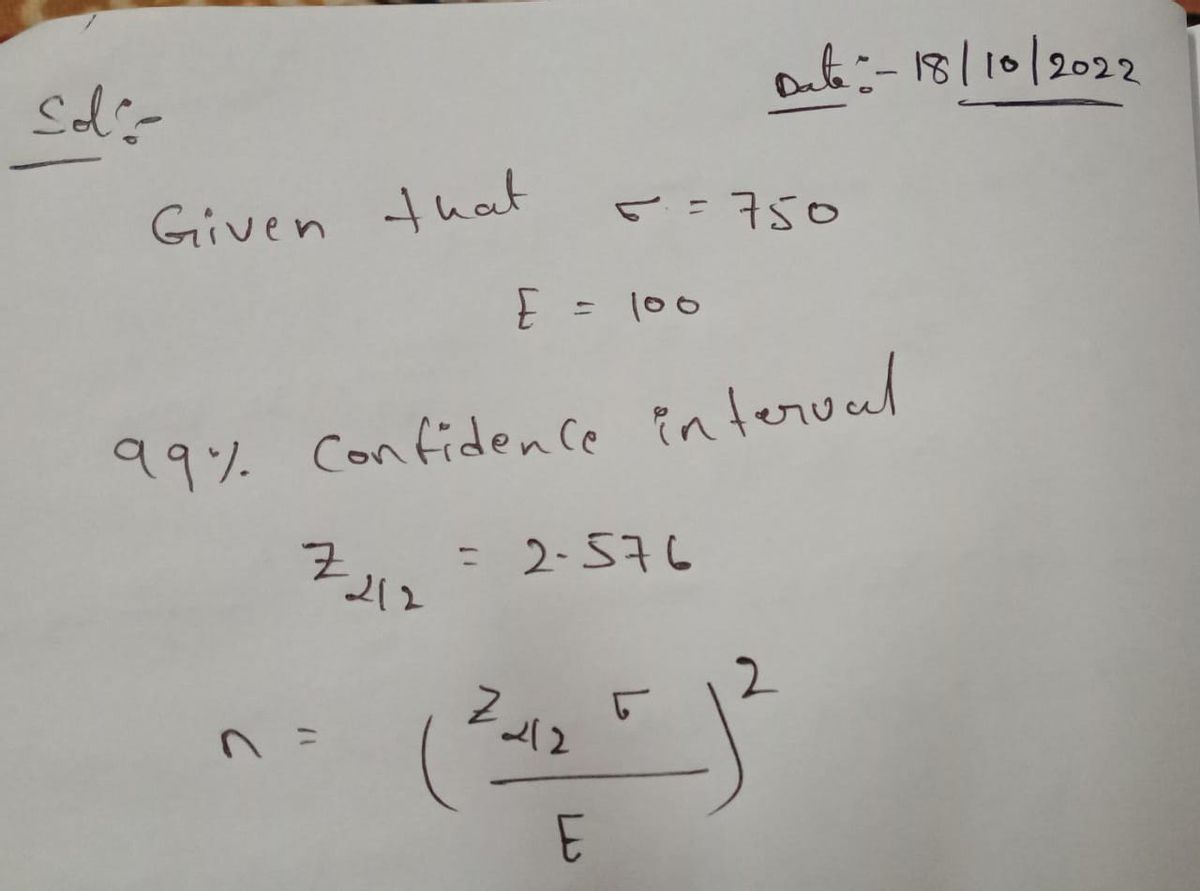 Date:- 18/10/2022
Sol:-
Given that σ = 750
E = 100
99% Confidence interval
Z α/2 = 2.576
n = ( Z α/2 σ / E )²